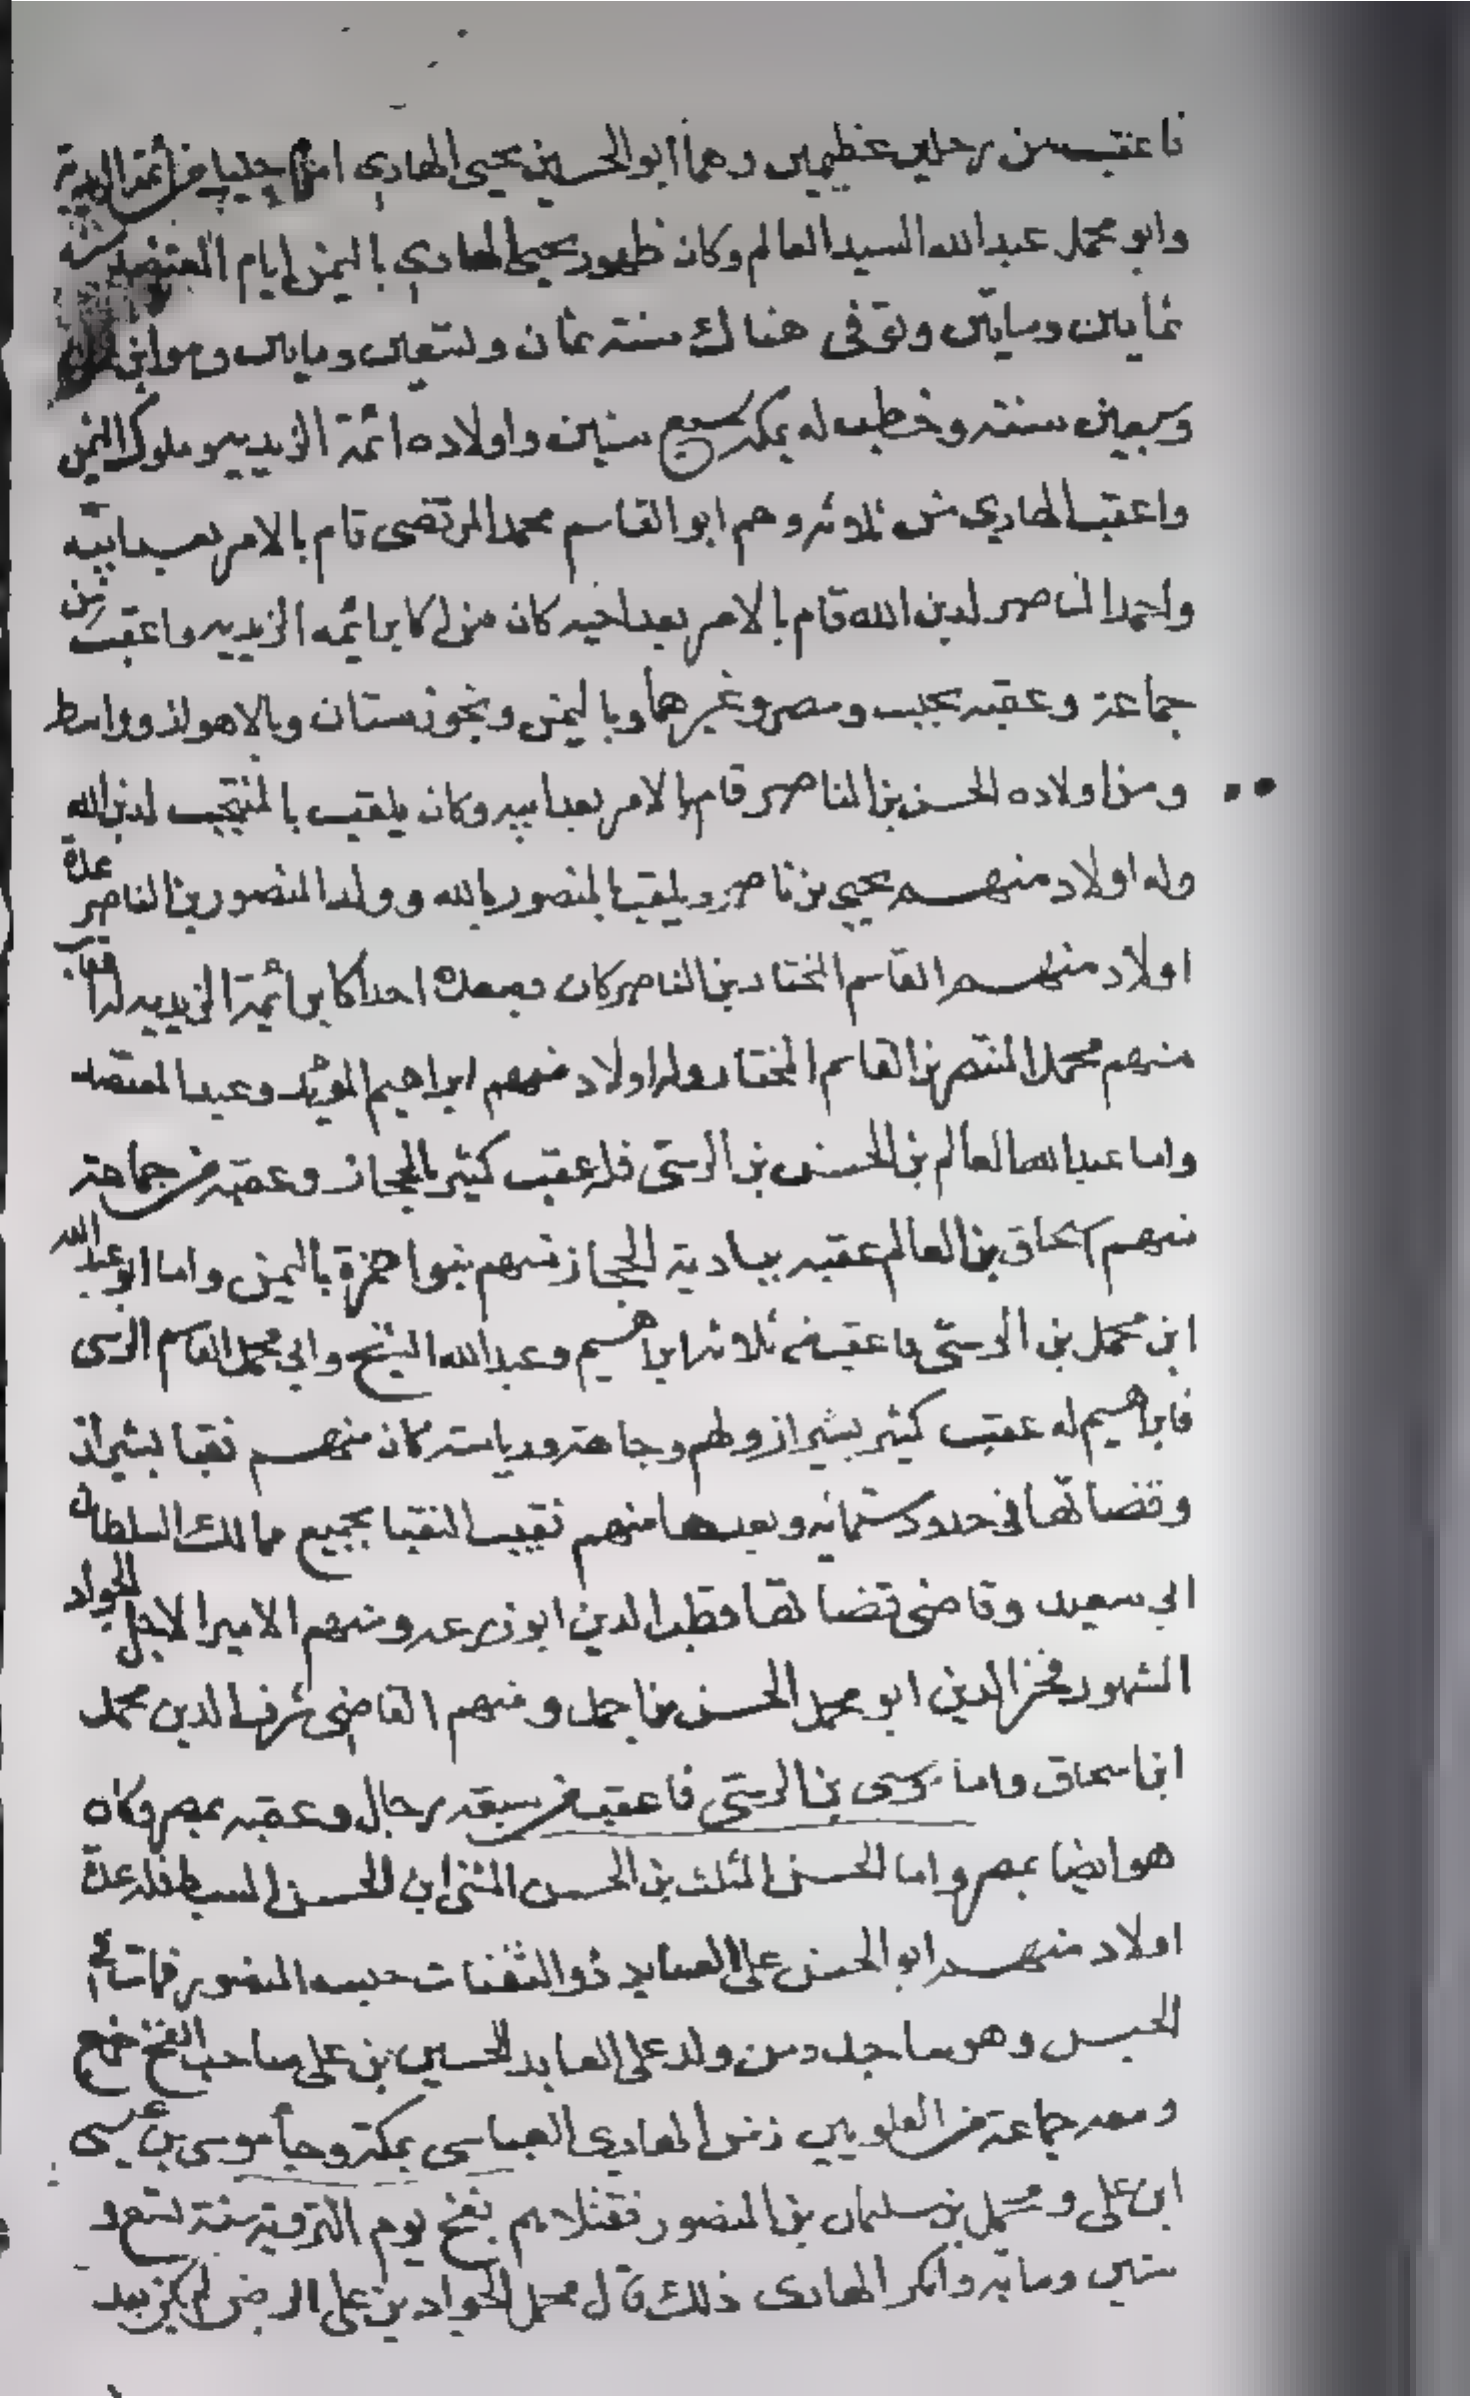 فاعقب من رجلين عظيمين وهما أبو الحسين يحيى الهادي اماما جليلا من أئمة الزيدية
وابو محمد عبدالله السيد العالم وكان ظهور يحيى الهادي باليمن ايام المعتضد سنة
ثمانين وماتين وتوفى هناك سنة ثمان وتسعين وماتين وهو ابن ثمان
وسبعين سنة وخطب له بمكه سبع سنين واولاده ائمة الزيديه وملوك اليمن
واعقب الهادي من ثلاثه وهم ابو القاسم محمد المرتضى قام بالامر بعد ابيه
واحمد الناصر لدين الله قام بالامر بعد اخيه كان من اكابر ايمه الزيديه واعقب من
جماعة وعقبه بحلب ومصر وغيرهما وباليمن وبخوزستان وبالاهواز وواسط
ومن اولاده الحسن بن الناصر قام بالامر بعد ابيه وكان يلقب بالمنتجب لدين الله
وله اولاد منهم يحيى بن ناصر ويلقب بالمنصور بالله وولد المنصور بن الناصر عدة
اولاد منهم القاسم المختار بن الناصر كان بصعدة احد اكابر ائمة الزيديه له اعقاب
منهم محمد المنتصر بن القاسم المختار وله اولاد منهم ابراهيم المؤيد وعبد المعتضد
واما عبدالله العالم بن الحسين بن الرسى فله عقب كثير بالحجاز وعقبه من جماعة
منهم اسحاق بن العالم عقبه ببادية الحجاز منهم بنوا حمزة باليمن واما ابو عبد الله
ابن محمد بن الرسّى فاعقب من ثلاثه ابراهيم وعبدالله الشيخ وابي محمد القاسم الرسى
فابراهيم له عقب كثير بشيراز ولهم وجاهة ورياسة كان منهم نقبا بشيراز
وقضاتها فى حدود ستمائه وبعدها منهم نقيب النقبا بجميع ممالك السلطان
ابي سعيد وقاضى قضاتها قطب الدين ابو زرعه ومنهم الامير الاجل الجواد
المشهور فخر الدين ابو محمد الحسن بن احمد ومنهم القاضي شرف الدين محمد
ابن اسحاق واما موسى بن الرسّي فاعقب من سبعة رجال وعقبه بمصر وكان
هو ايضا بمصر واما الحسن المثلث بن الحسن المثنى ابن الحسن السبط فله عدة
اولاد منهم ابو الحسن على العابد ذو الثفنات حبسه المنصور فمات في
الحبس وهو ساجد ومن ولد على العابد الحسين بن على صاحب الفخ خرج
ومعه جماعة من العلويين زمن الهادي العباسي بمكة وجأ موسى بن عيسى
ابن على ومحمد بن سليمان بن المنصور فقتلاهم بفخ يوم التروية سنة تسع و
ستين ومائه وانكر الهادى ذلك قال محمد الجواد بن على الرضى لم يكن بعد